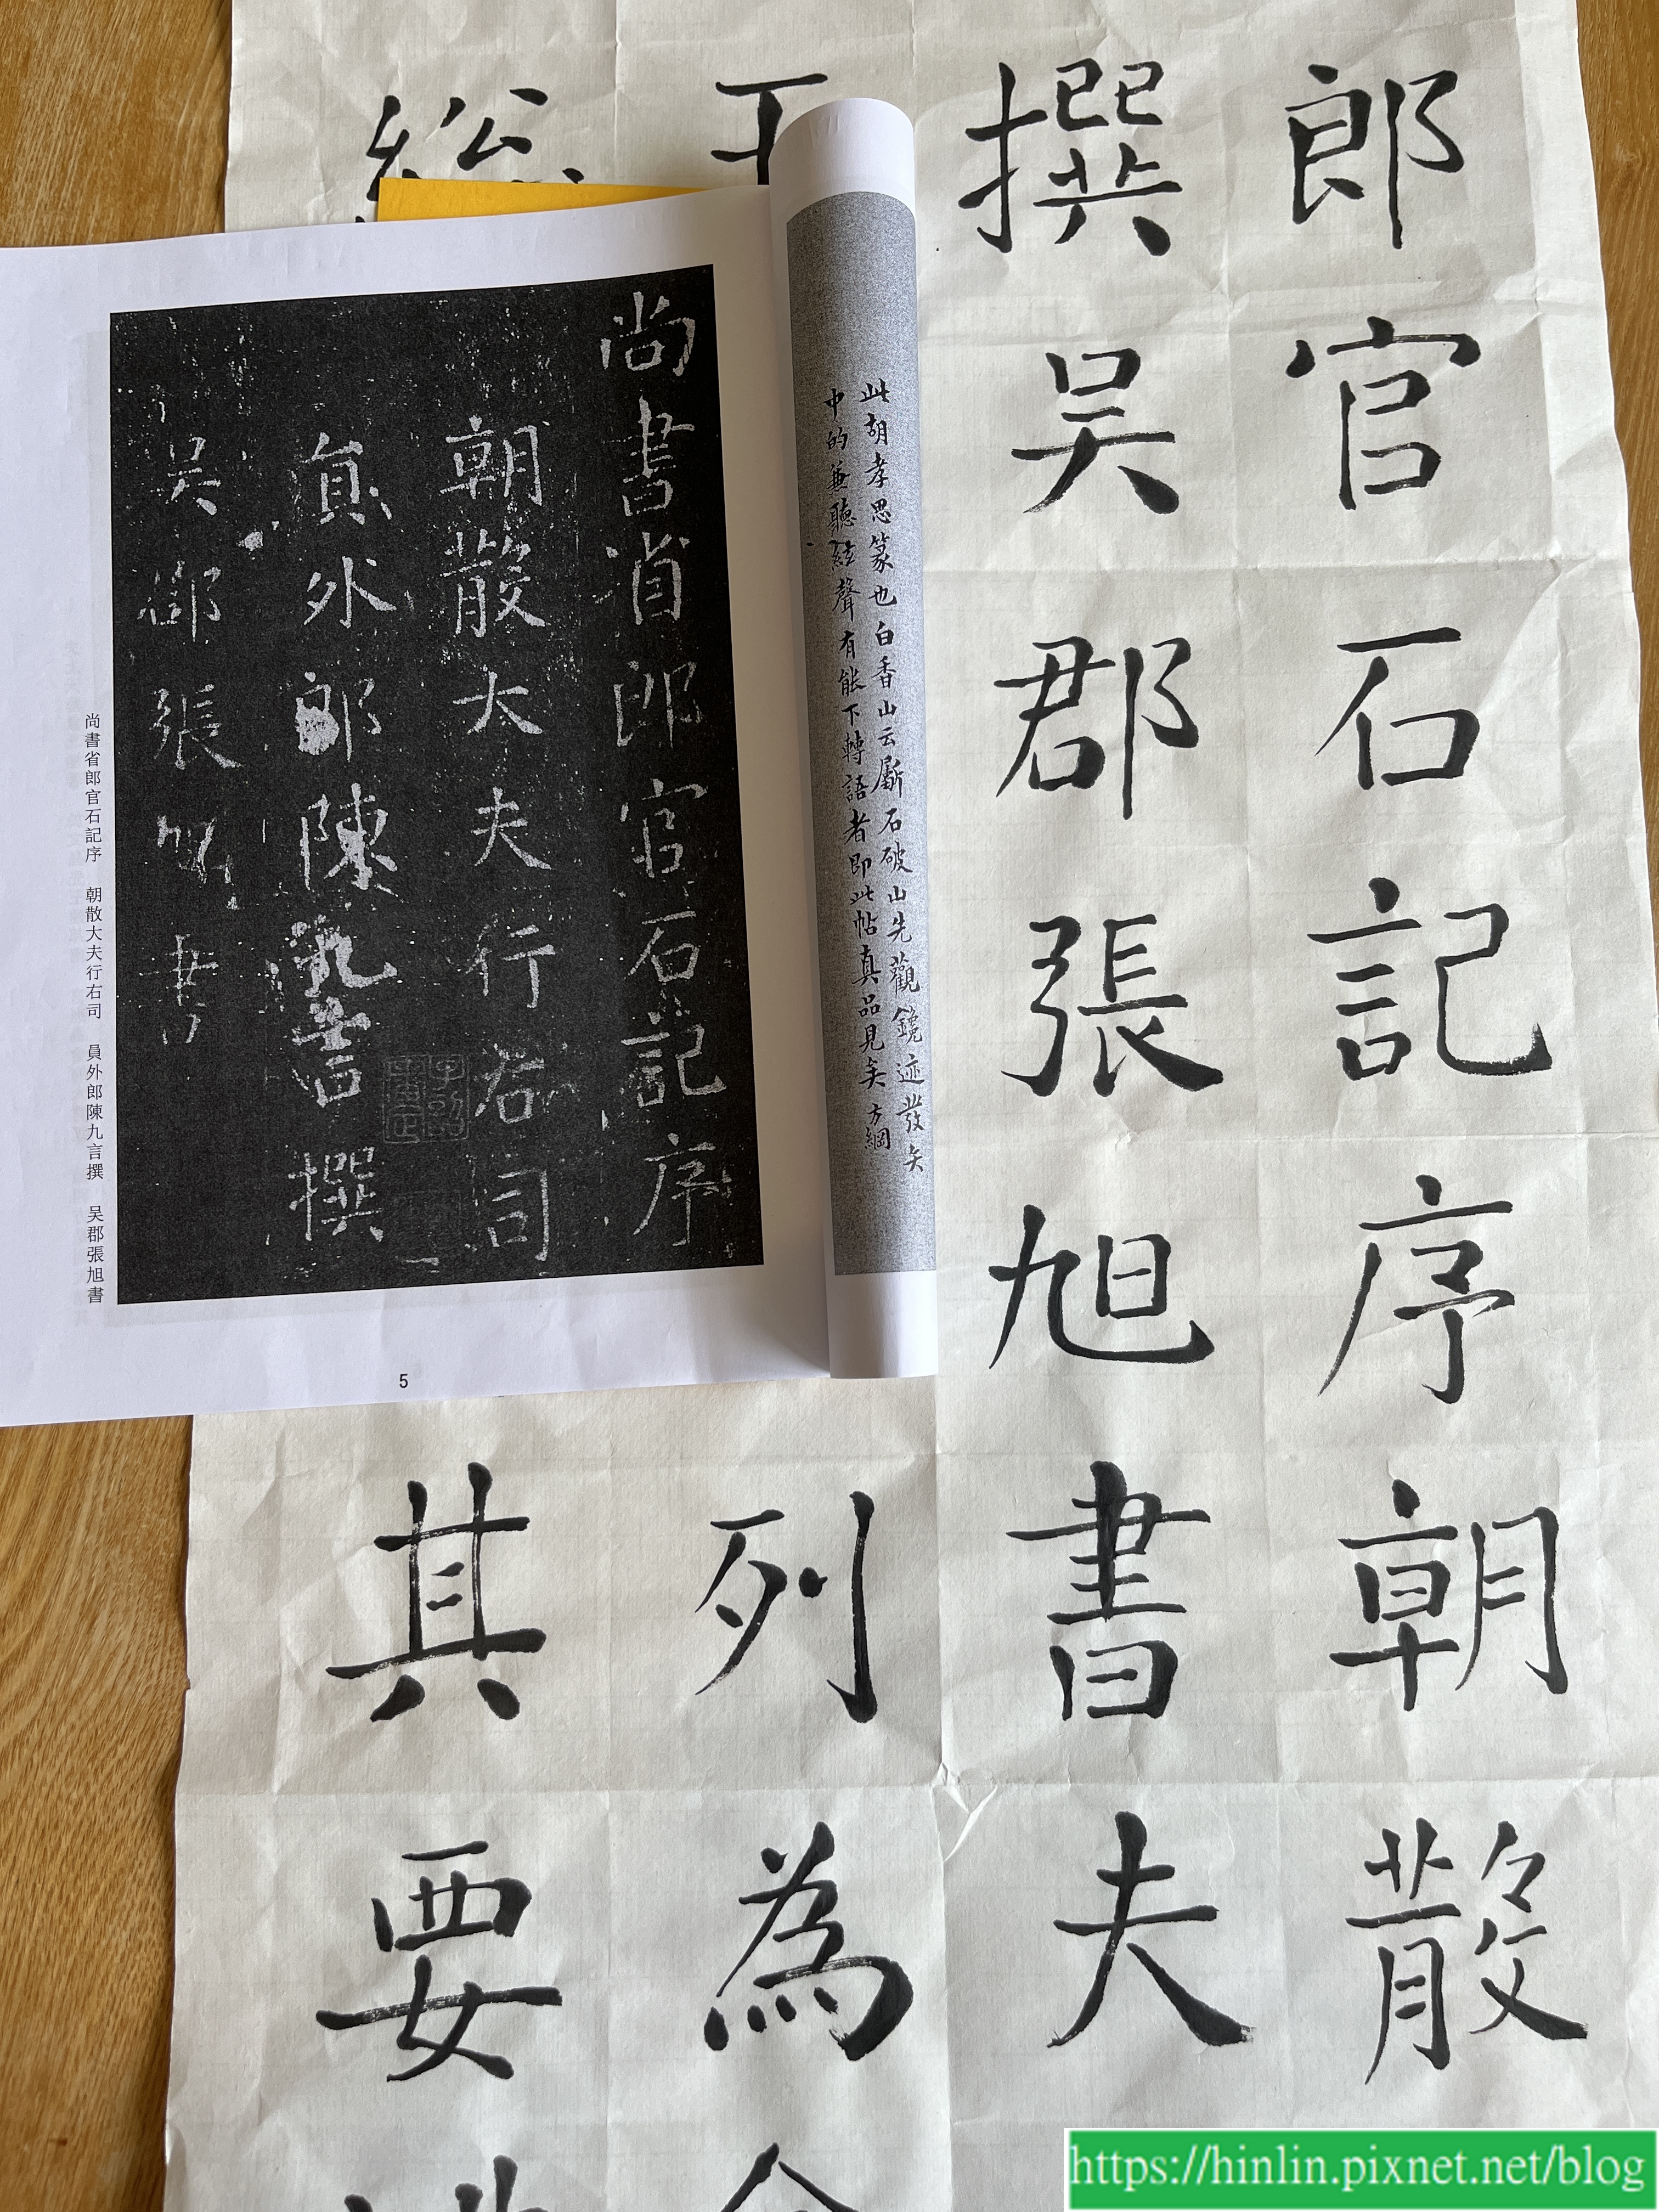 郎官石記序朝散
撰吳郡張旭書夫
列為
其要
此胡孝思篆也白香山云斸石破山先觀鑱迹發矢
中的兼聽絃聲有能下轉語者即此帖真品見矣 方綱
尚書省郎官石記序
朝散大夫行右司
員外郎陳九言撰
吳郡張旭書
尚書省郎官石記序 朝散大夫行右司 員外郎陳九言撰 吳郡張旭書
5
https://hinlin.pixnet.net/blog